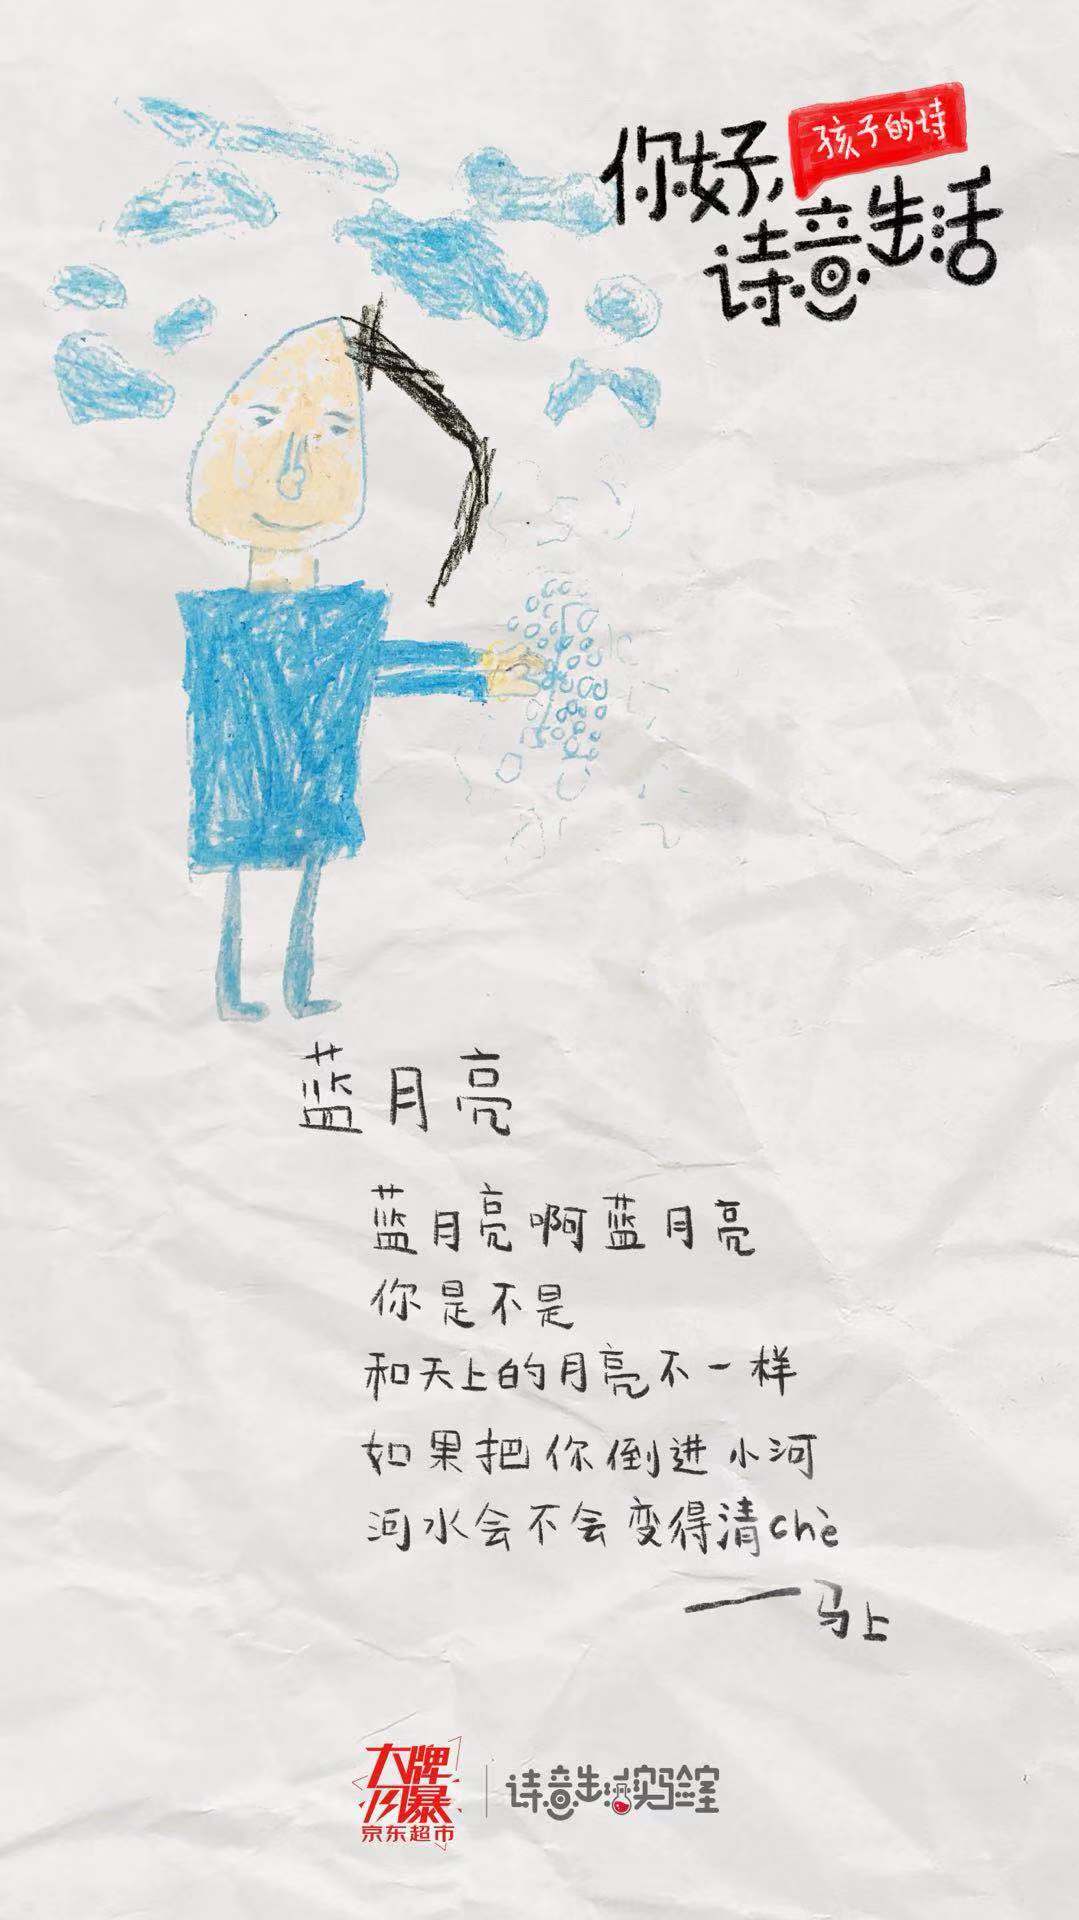 孩子的诗
你好,
诗意生活
蓝月亮
蓝月亮啊蓝月亮
你是不是
和天上的月亮不一样
如果把你倒进小河
河水会不会变得清chè
——马上
大牌
风暴
京东超市
诗意生活实验室